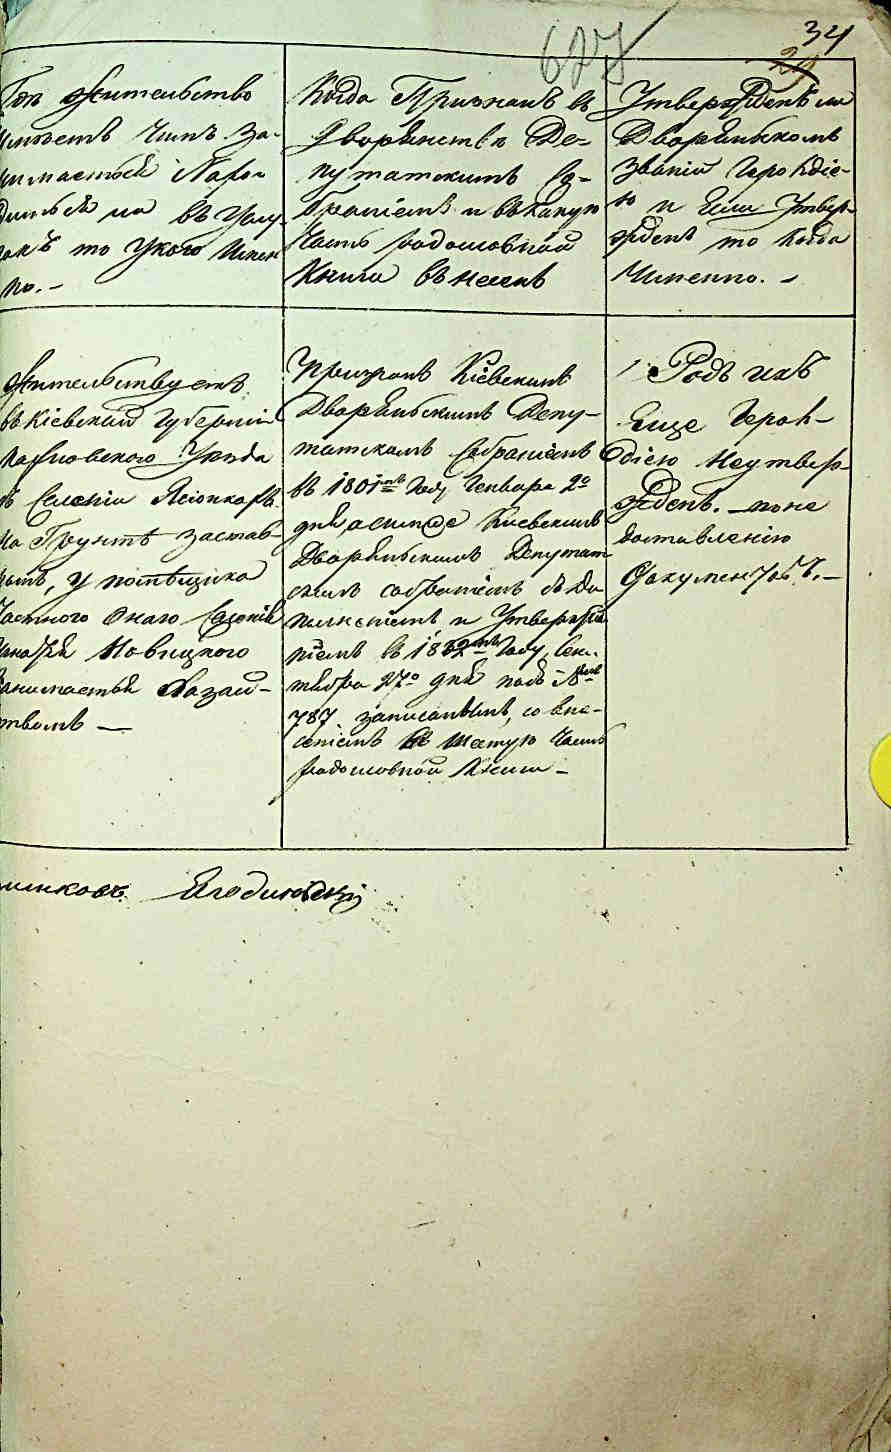 627
34
29
Где жительство
имѣетъ чѣмъ за-
нимается и находится
ли въ услу-
то у кого имен
но. -
Когда Признанъ въ
Дворянствѣ Де-
путатскимъ Со-
браніемъ и въ какую
Часть родословной
Книги внесенъ
Утвержденъ ли
Дворянскомъ
званіи Герольдіе-
ю и Если Утвер-
жденъ то когда
Именно. -
Жительствуетъ
въ Кіевской Губерніи
Уѣзда
въ Селеніи
на Грунтѣ застав-
у помѣщика
Частного Онаго Селенія
Новицкого
занимается Хазяй-
ствомъ —
признанъ Кіевскимъ
Дворянскимъ Депу-
татскимъ Собраніемъ
въ 1801мъ Году Генваря 2го
дня Киевскимъ
Дворянскимъ Депутат
скимъ собраніемъ
и Утвержде
ніемъ въ 1832мъ Году Сен-
тября 27го дня подъ №мъ
787. записаннымъ, со вне-
сеніемъ въ шестую Часть
родословной Книги -
Родъ ихъ
Еще Героль-
діею Неутвер-
жденъ. - по не
доставленію
Документовъ. -